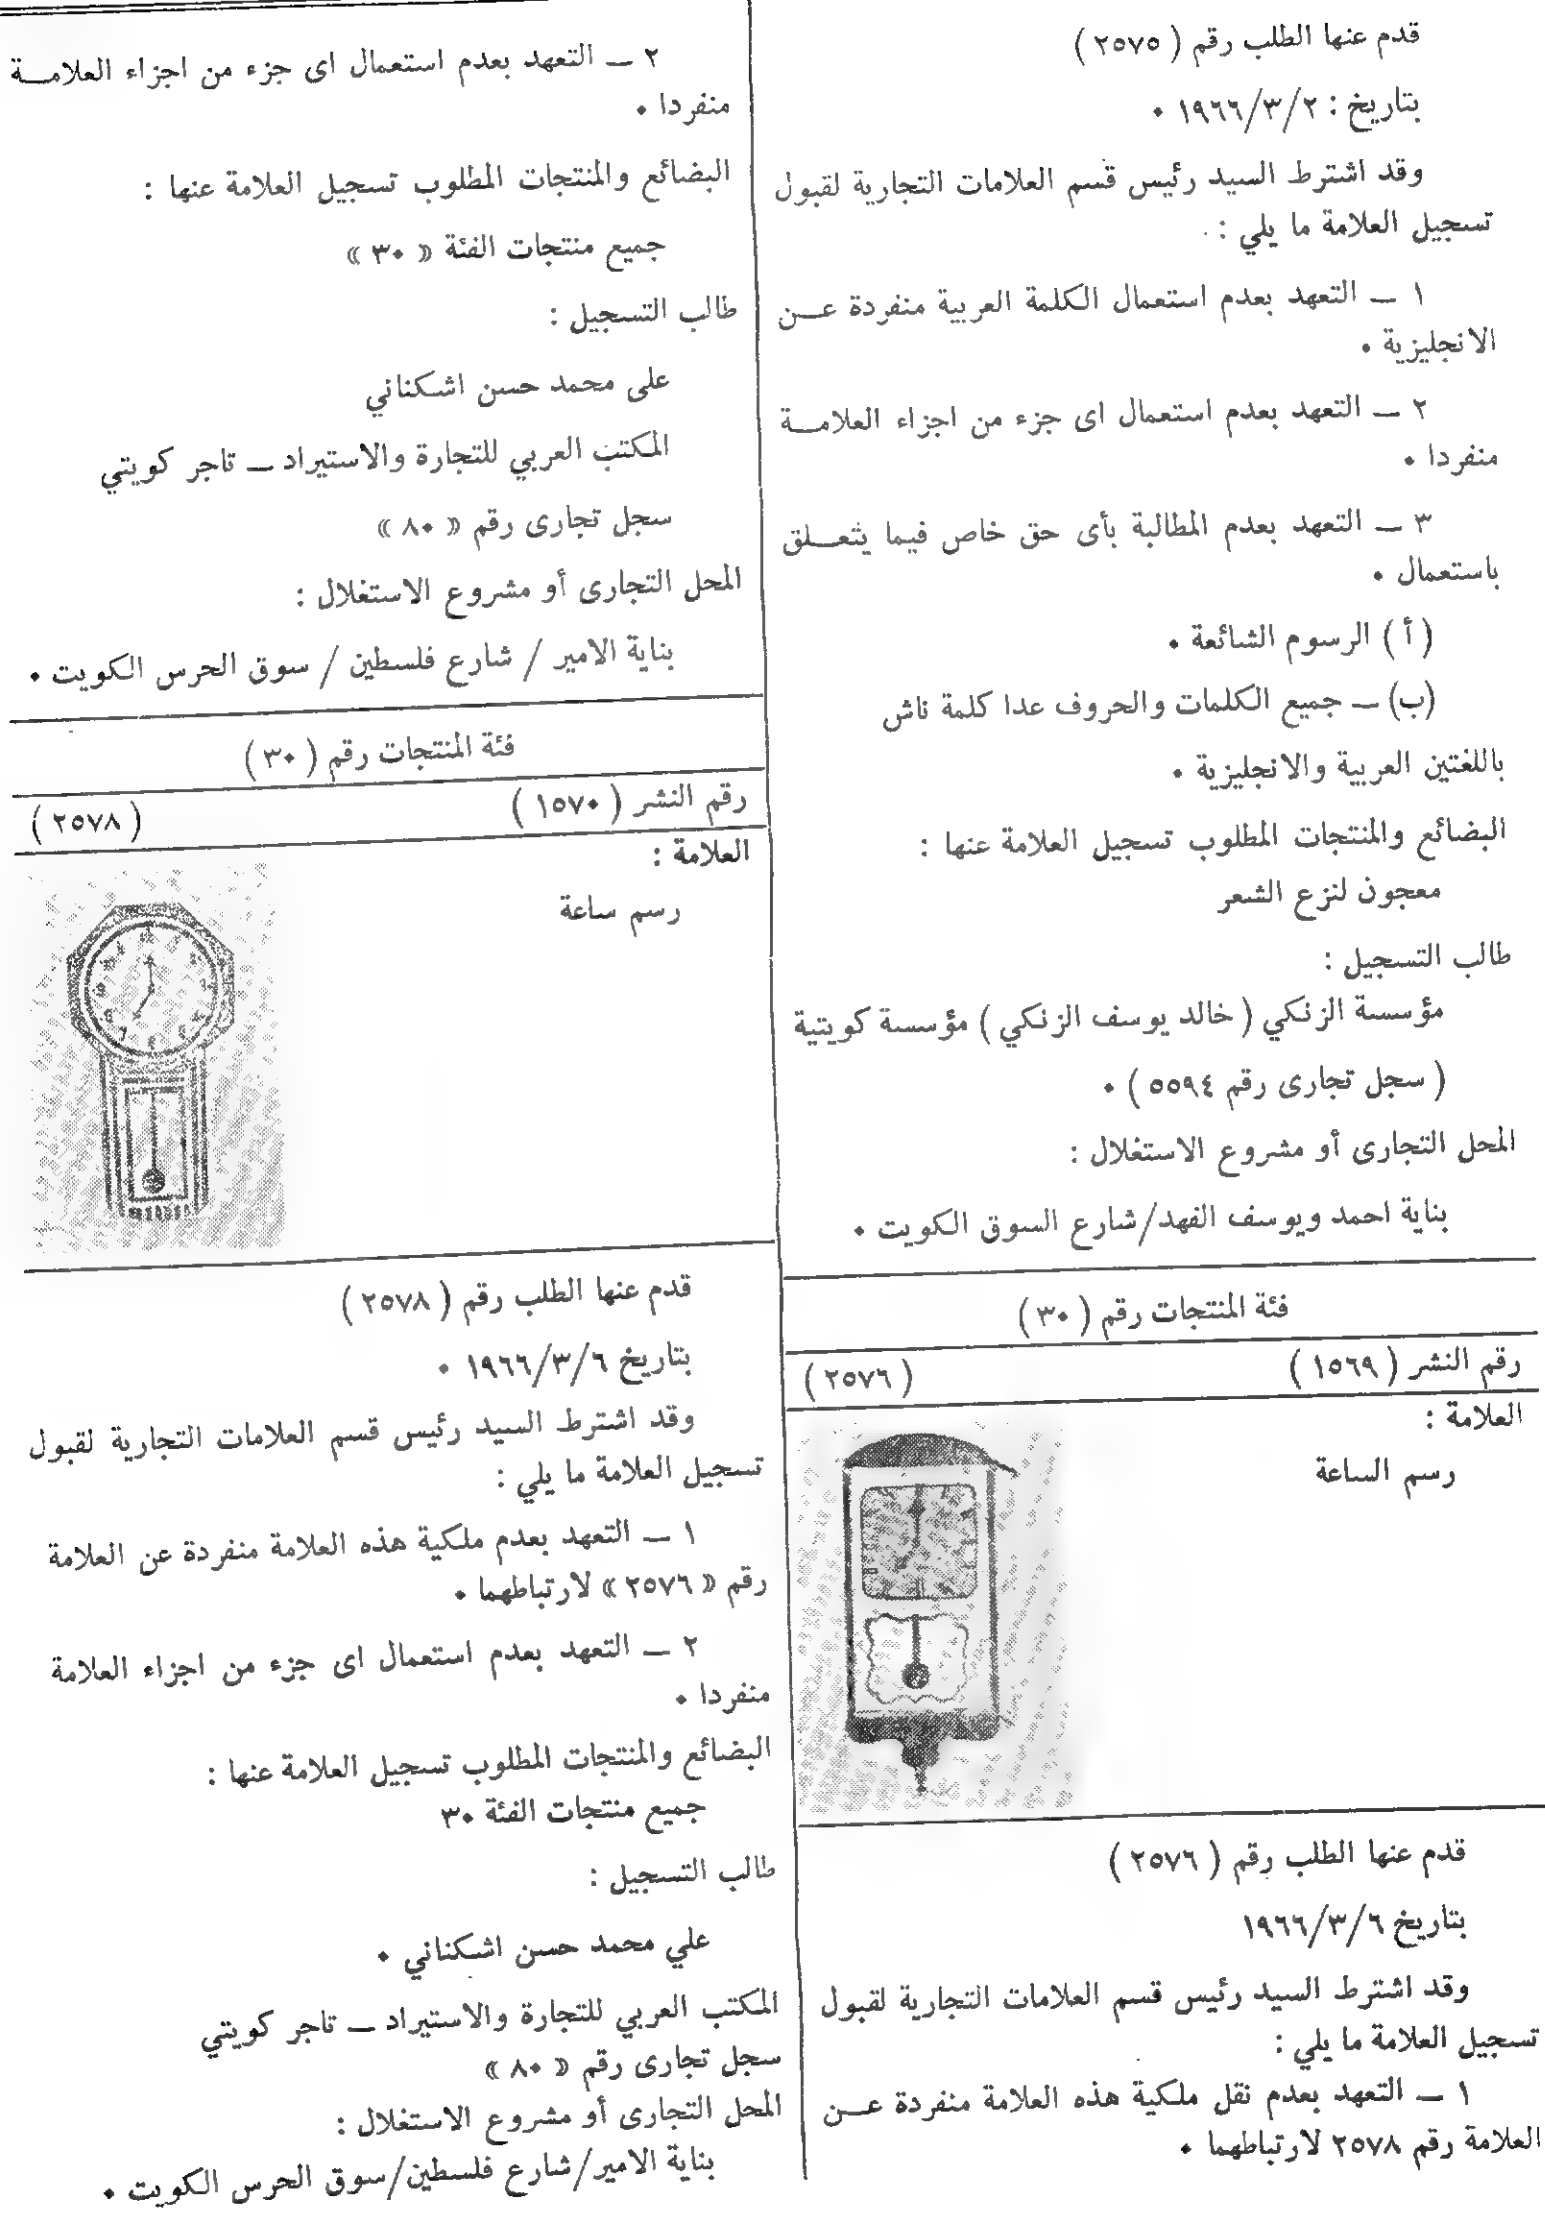 قدم عنها الطلب رقم ( ٢٥٧٥ )
بتاريخ : ١٩٦٦/٣/٢ ٠
وقد اشترط السيد رئيس قسم العلامات التجارية لقبول
تسجيل العلامة ما يلي :
١ ــ التعهد بعدم استعمال الكلمة العربية منفردة عـــن
الانجليزية ٠
٢ ــ التعهد بعدم استعمال اى جزء من اجزاء العلامـــة
منفردا ٠
٣ ــ التعهد بعدم المطالبة بأى حق خاص فيما يتعـــلق
باستعمال ٠
( أ ) الرسوم الشائعة ٠
(ب) ــ جميع الكلمات والحروف عدا كلمة ناش
باللغتين العربية والانجليزية ٠
البضائع والمنتجات المطلوب تسجيل العلامة عنها :
معجون لنزع الشعر
طالب التسجيل :
مؤسسة الزنكي ( خالد يوسف الزنكي ) مؤسسة كويتية
( سجل تجارى رقم ٥٥٩٤ ) ٠
المحل التجارى أو مشروع الاستغلال :
بناية احمد ويوسف الفهد/شارع السوق الكويت ٠
فئة المنتجات رقم ( ٣٠ )
رقم النشر ( ١٥٦٩ ) ( ٢٥٧٦ )
العلامة :
رسم الساعة
قدم عنها الطلب رقم ( ٢٥٧٦ )
بتاريخ ١٩٦٦/٣/٦
وقد اشترط السيد رئيس قسم العلامات التجارية لقبول
تسجيل العلامة ما يلي :
١ ــ التعهد بعدم نقل ملكية هذه العلامة منفردة عـــن
العلامة رقم ٢٥٧٨ لارتباطهما ٠
٢ ــ التعهد بعدم استعمال اى جزء من اجزاء العلامـــة
منفردا ٠
البضائع والمنتجات المطلوب تسجيل العلامة عنها :
جميع منتجات الفئة « ٣٠ »
طالب التسجيل :
على محمد حسن اشكناني
المكتب العربي للتجارة والاستيراد ــ تاجر كويتي
سجل تجارى رقم « ٨٠ »
المحل التجارى أو مشروع الاستغلال :
بناية الامير / شارع فلسطين / سوق الحرس الكويت ٠
فئة المنتجات رقم ( ٣٠ )
رقم النشر ( ١٥٧٠ ) ( ٢٥٧٨ )
العلامة :
رسم ساعة
قدم عنها الطلب رقم ( ٢٥٧٨ )
بتاريخ ١٩٦٦/٣/٦ ٠
وقد اشترط السيد رئيس قسم العلامات التجارية لقبول
تسجيل العلامة ما يلي :
١ ــ التعهد بعدم ملكية هذه العلامة منفردة عن العلامة
رقم « ٢٥٧٦ » لارتباطهما ٠
٢ ــ التعهد بعدم استعمال اى جزء من اجزاء العلامة
منفردا ٠
البضائع والمنتجات المطلوب تسجيل العلامة عنها :
جميع منتجات الفئة ٣٠
طالب التسجيل :
علي محمد حسن اشكناني ٠
المكتب العربي للتجارة والاستيراد ــ تاجر كويتي
سجل تجارى رقم « ٨٠ »
المحل التجارى أو مشروع الاستغلال :
بناية الامير/شارع فلسطين/سوق الحرس الكويت ٠